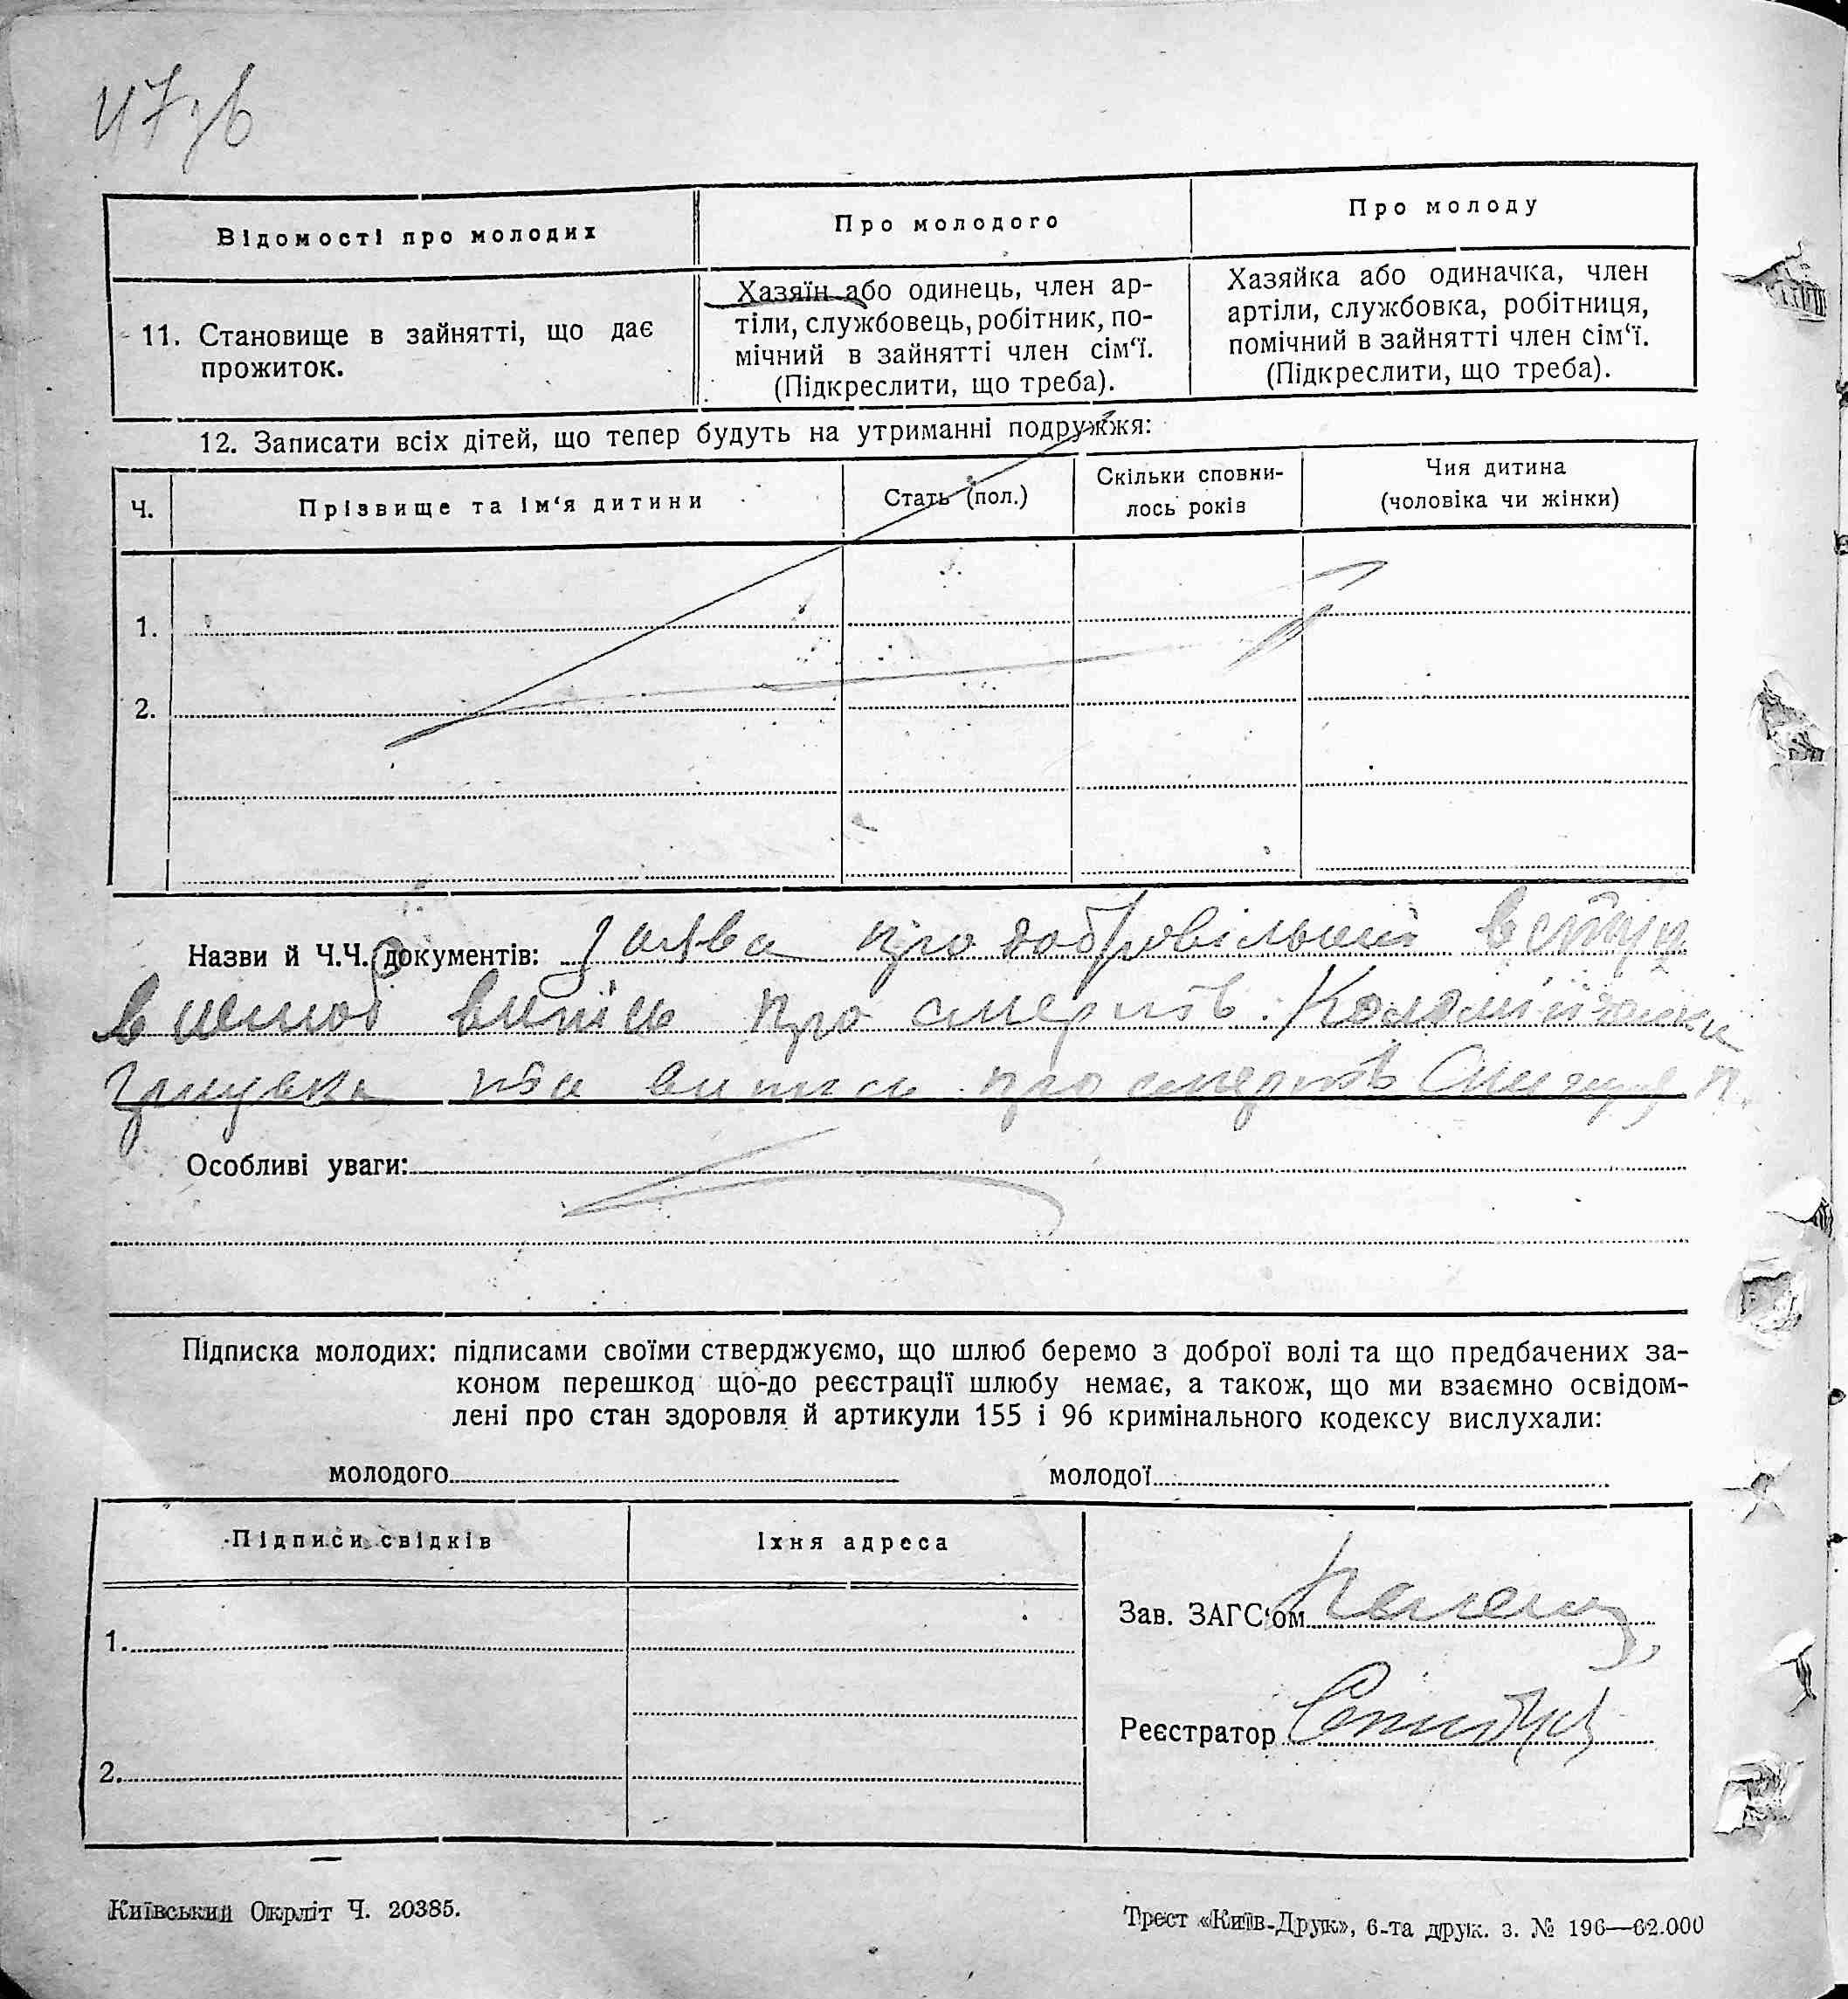 47зв
Відомості про молодих
Про молодого
Про молоду
11. Становище в зайнятті, що дає
прожиток.
Хазяїн або одинець, член ар-
тіли, службовець, робітник, по-
мічний в зайнятті член сім‘ї.
(Підкреслити, що треба).
Хазяйка або одиначка, член
артіли, службовка, робітниця,
помічний в зайнятті член сім‘ї.
(Підкреслити, що треба).
12. Записати всіх дітей, що тепер будуть на утриманні подружжя:
Ч.
Прізвище та ім‘я дитини
Стать (пол.)
Скільки сповни-
лось років
Чия дитина
(чоловіка чи жінки)
1.
2.
Назви й Ч.Ч. документів: заява про добровільний вступ
в шлюб витяг про смерть
та випис про смерть
Особливі уваги:
Підписка молодих: підписами своїми стверджуємо, що шлюб беремо з доброї волі та що предбачених за-
коном перешкод що-до реєстрації шлюбу немає, а також, що ми взаємно освідом-
лені про стан здоровля й артикули 155 і 96 кримінального кодексу вислухали:
молодого
молодої
Підписи свідків
Їхня адреса
1.
2.
Зав. ЗАГС‘ом
Реєстратор
Київський Окрліт Ч. 20385.
Трест «Київ-Друк», 6-та друк. з. № 196—62.000